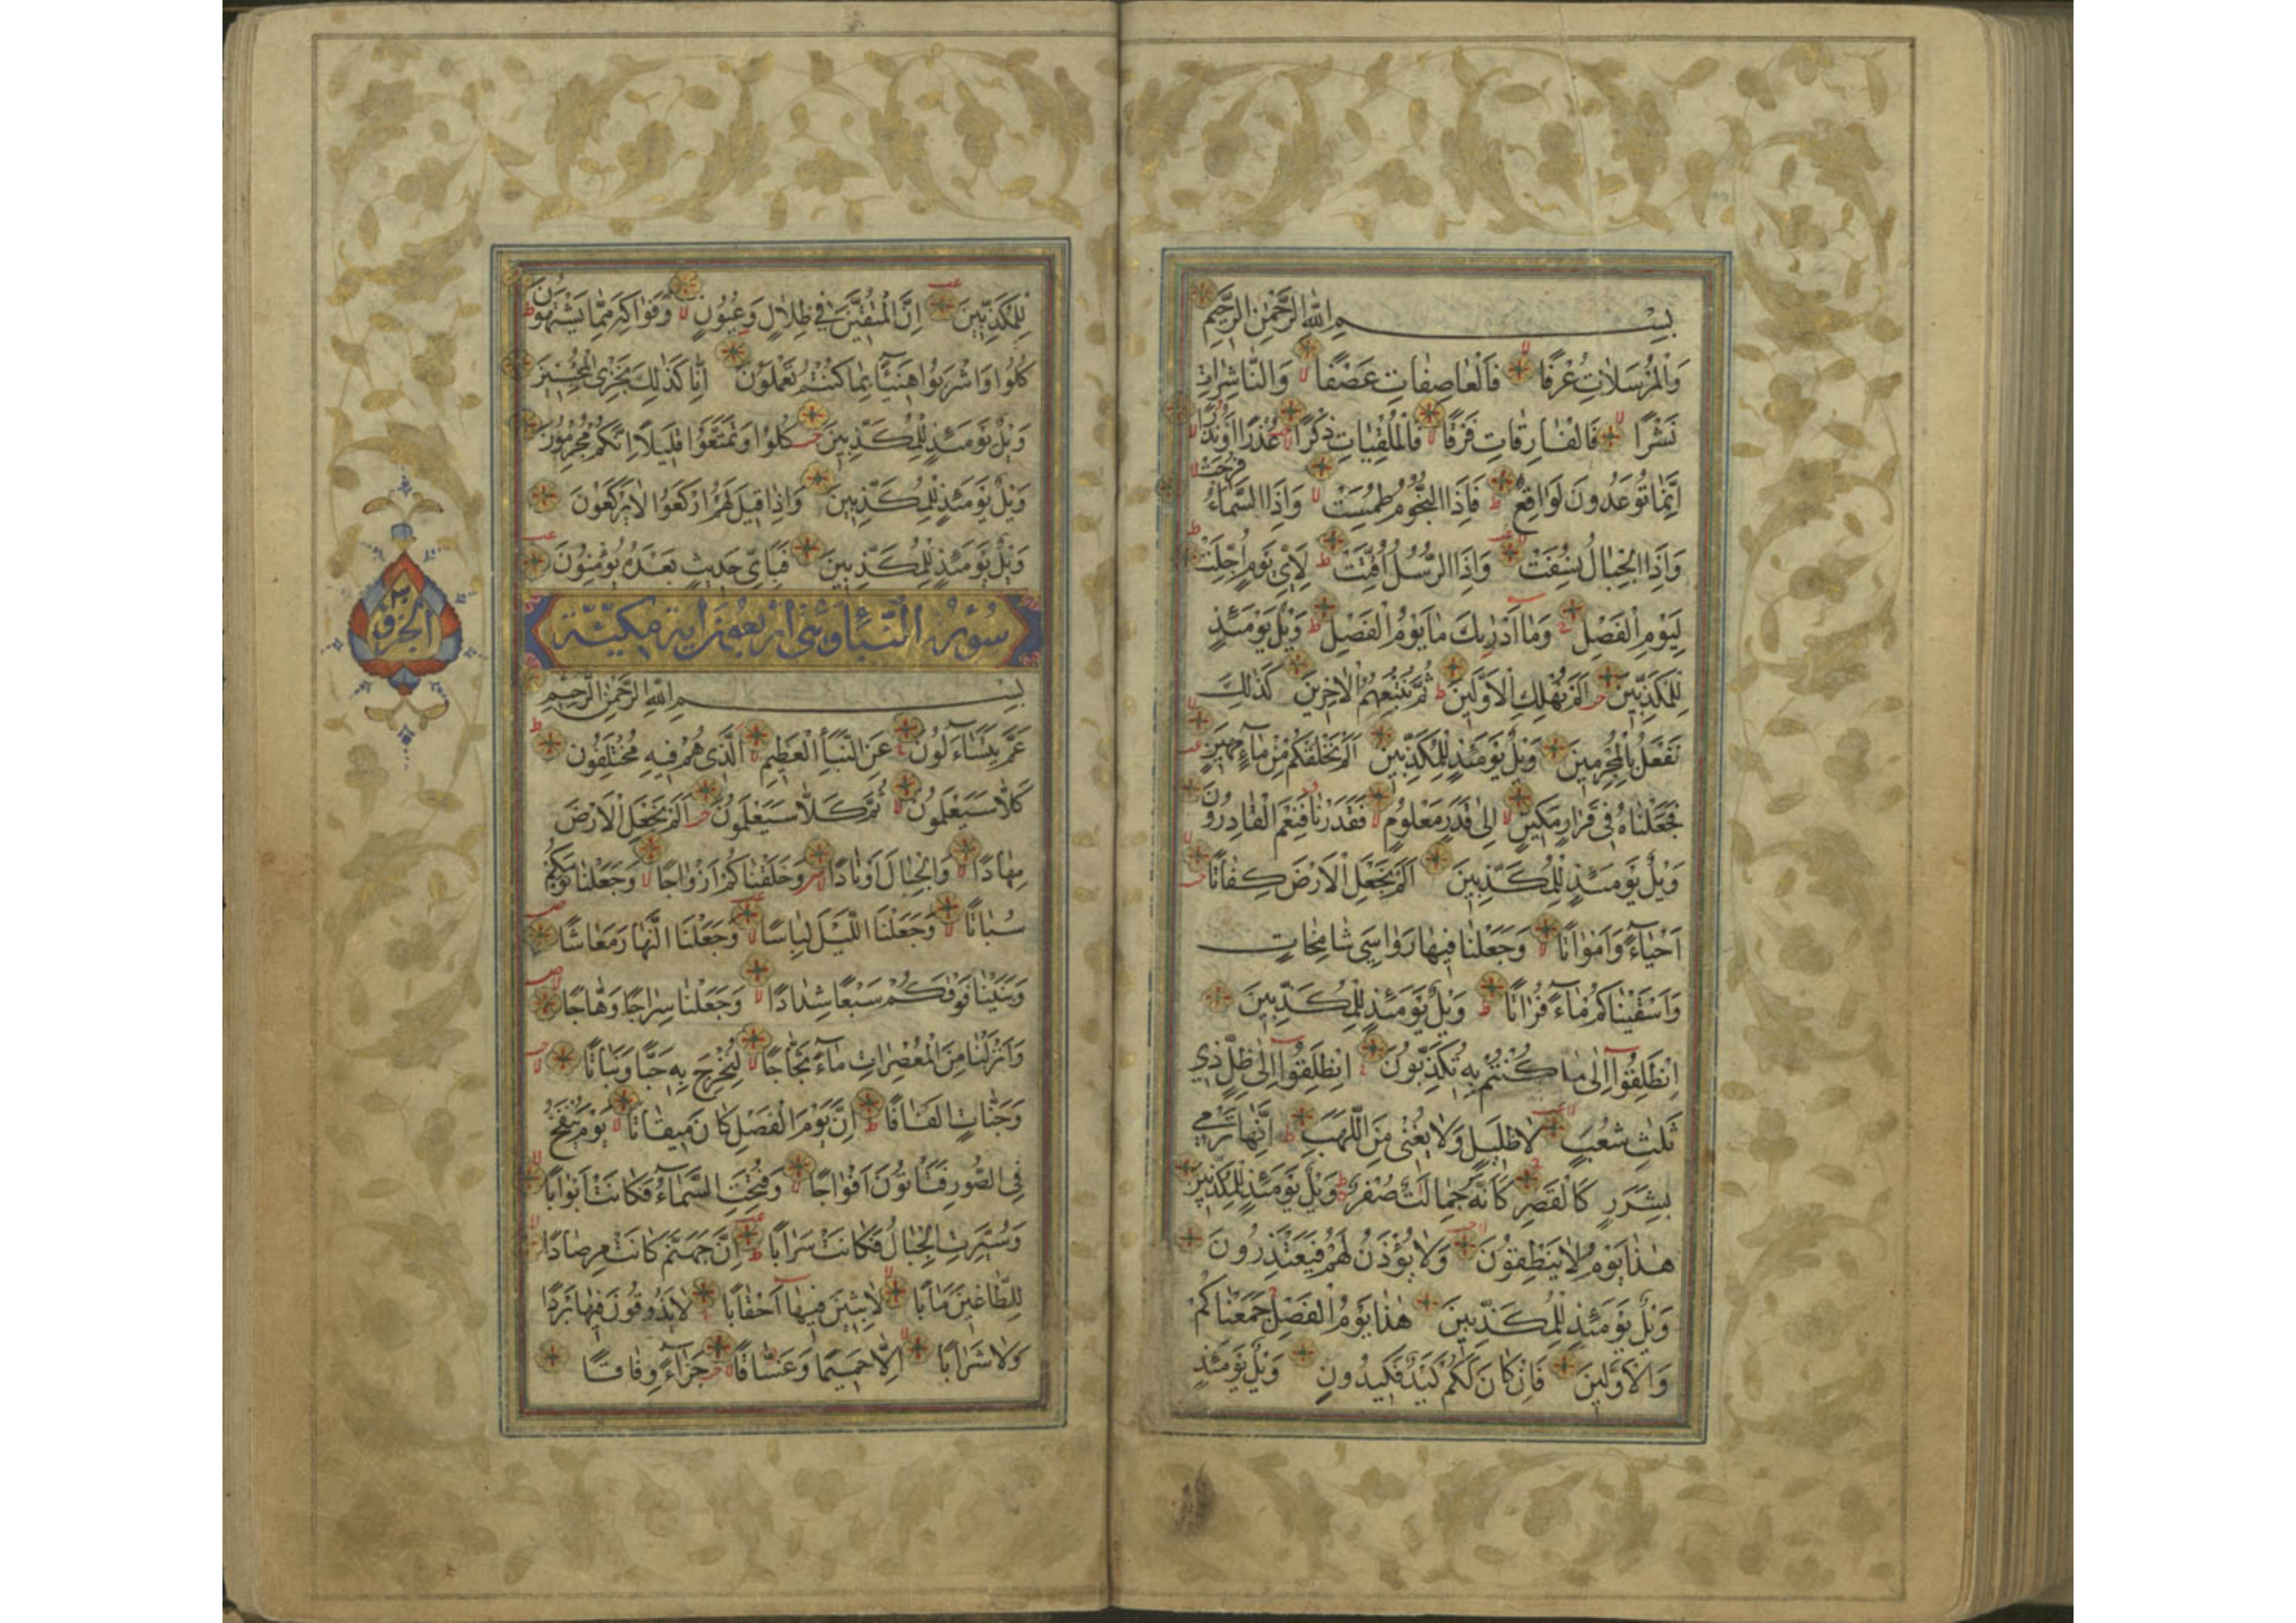 بِسْمِ اللهِ الرَّحْمٰنِ الرَّحِيمِ
وَالْمُرْسَلَاتِ عُرْفًا فَالْعَاصِفَاتِ عَصْفًا وَالنَّاشِرَاتِ
نَشْرًا فَالْفَارِقَاتِ فَرْقًا فَالْمُلْقِيَاتِ ذِكْرًا عُذْرًا اَوْ نُذْرًا
اِنَّمَا تُوعَدُونَ لَوَاقِعٌ فَاِذَا النُّجُومُ طُمِسَتْ وَاِذَا السَّمَاءُ فُرِجَتْ
وَاِذَا الْجِبَالُ نُسِفَتْ وَاِذَا الرُّسُلُ اُقِّتَتْ لِاَيِّ يَوْمٍ اُجِّلَتْ
لِيَوْمِ الْفَصْلِ وَمَا اَدْرٰيكَ مَا يَوْمُ الْفَصْلِ وَيْلٌ يَوْمَئِذٍ
لِلْمُكَذِّبِينَ اَلَمْ نُهْلِكِ الْاَوَّلِينَ ثُمَّ نُتْبِعُهُمُ الْاٰخِرِينَ كَذٰلِكَ
نَفْعَلُ بِالْمُجْرِمِينَ وَيْلٌ يَوْمَئِذٍ لِلْمُكَذِّبِينَ اَلَمْ نَخْلُقْكُمْ مِنْ مَاءٍ مَهِينٍ
فَجَعَلْنَاهُ فِي قَرَارٍ مَكِينٍ اِلٰى قَدَرٍ مَعْلُومٍ فَقَدَرْنَا فَنِعْمَ الْقَادِرُونَ
وَيْلٌ يَوْمَئِذٍ لِلْمُكَذِّبِينَ اَلَمْ نَجْعَلِ الْاَرْضَ كِفَاتًا
اَحْيَاءً وَاَمْوَاتًا وَجَعَلْنَا فِيهَا رَوَاسِيَ شَامِخَاتٍ
وَاَسْقَيْنَاكُمْ مَاءً فُرَاتًا وَيْلٌ يَوْمَئِذٍ لِلْمُكَذِّبِينَ
اِنْطَلِقُوا اِلٰى مَا كُنْتُمْ بِهِ تُكَذِّبُونَ اِنْطَلِقُوا اِلٰى ظِلٍّ ذِي
ثَلٰثِ شُعَبٍ لَا ظَلِيلٍ وَلَا يُغْنِي مِنَ اللَّهَبِ اِنَّهَا تَرْمِي
بِشَرَرٍ كَالْقَصْرِ كَاَنَّهُ جِمَالَتٌ صُفْرٌ وَيْلٌ يَوْمَئِذٍ لِلْمُكَذِّبِينَ
هٰذَا يَوْمُ لَا يَنْطِقُونَ وَلَا يُؤْذَنُ لَهُمْ فَيَعْتَذِرُونَ
وَيْلٌ يَوْمَئِذٍ لِلْمُكَذِّبِينَ هٰذَا يَوْمُ الْفَصْلِ جَمَعْنَاكُمْ
وَالْاَوَّلِينَ فَاِنْ كَانَ لَكُمْ كَيْدٌ فَكِيدُونِ وَيْلٌ يَوْمَئِذٍ
لِلْمُكَذِّبِينَ اِنَّ الْمُتَّقِينَ فِي ظِلَالٍ وَعُيُونٍ وَفَوَاكِهَ مِمَّا يَشْتَهُونَ
كُلُوا وَاشْرَبُوا هَنِيئًا بِمَا كُنْتُمْ تَعْمَلُونَ اِنَّا كَذٰلِكَ نَجْزِي الْمُحْسِنِينَ
وَيْلٌ يَوْمَئِذٍ لِلْمُكَذِّبِينَ كُلُوا وَتَمَتَّعُوا قَلِيلًا اِنَّكُمْ مُجْرِمُونَ
وَيْلٌ يَوْمَئِذٍ لِلْمُكَذِّبِينَ وَاِذَا قِيلَ لَهُمُ ارْكَعُوا لَا يَرْكَعُونَ
وَيْلٌ يَوْمَئِذٍ لِلْمُكَذِّبِينَ فَبِاَيِّ حَدِيثٍ بَعْدَهُ يُؤْمِنُونَ
سُورَةُ النَّبَأِ وَهِيَ اَرْبَعُونَ اٰيَة مَكِيَّة
بِسْمِ اللهِ الرَّحْمٰنِ الرَّحِيمِ
عَمَّ يَتَسَاءَلُونَ عَنِ النَّبَأِ الْعَظِيمِ اَلَّذِي هُمْ فِيهِ مُخْتَلِفُونَ
كَلَّا سَيَعْلَمُونَ ثُمَّ كَلَّا سَيَعْلَمُونَ اَلَمْ نَجْعَلِ الْاَرْضَ
مِهَادًا وَالْجِبَالَ اَوْتَادًا وَخَلَقْنَاكُمْ اَزْوَاجًا وَجَعَلْنَا نَوْمَكُمْ
سُبَاتًا وَجَعَلْنَا اللَّيْلَ لِبَاسًا وَجَعَلْنَا النَّهَارَ مَعَاشًا
وَبَنَيْنَا فَوْقَكُمْ سَبْعًا شِدَادًا وَجَعَلْنَا سِرَاجًا وَهَّاجًا
وَاَنْزَلْنَا مِنَ الْمُعْصِرَاتِ مَاءً ثَجَّاجًا لِنُخْرِجَ بِهِ حَبًّا وَنَبَاتًا
وَجَنَّاتٍ اَلْفَافًا اِنَّ يَوْمَ الْفَصْلِ كَانَ مِيقَاتًا يَوْمَ يُنْفَخُ
فِي الصُّورِ فَتَأْتُونَ اَفْوَاجًا وَفُتِحَتِ السَّمَاءُ فَكَانَتْ اَبْوَابًا
وَسُيِّرَتِ الْجِبَالُ فَكَانَتْ سَرَابًا اِنَّ جَهَنَّمَ كَانَتْ مِرْصَادًا
لِلطَّاغِينَ مَاٰبًا لَابِثِينَ فِيهَا اَحْقَابًا لَا يَذُوقُونَ فِيهَا بَرْدًا
وَلَا شَرَابًا اِلَّا حَمِيمًا وَغَسَّاقًا جَزَاءً وِفَاقًا